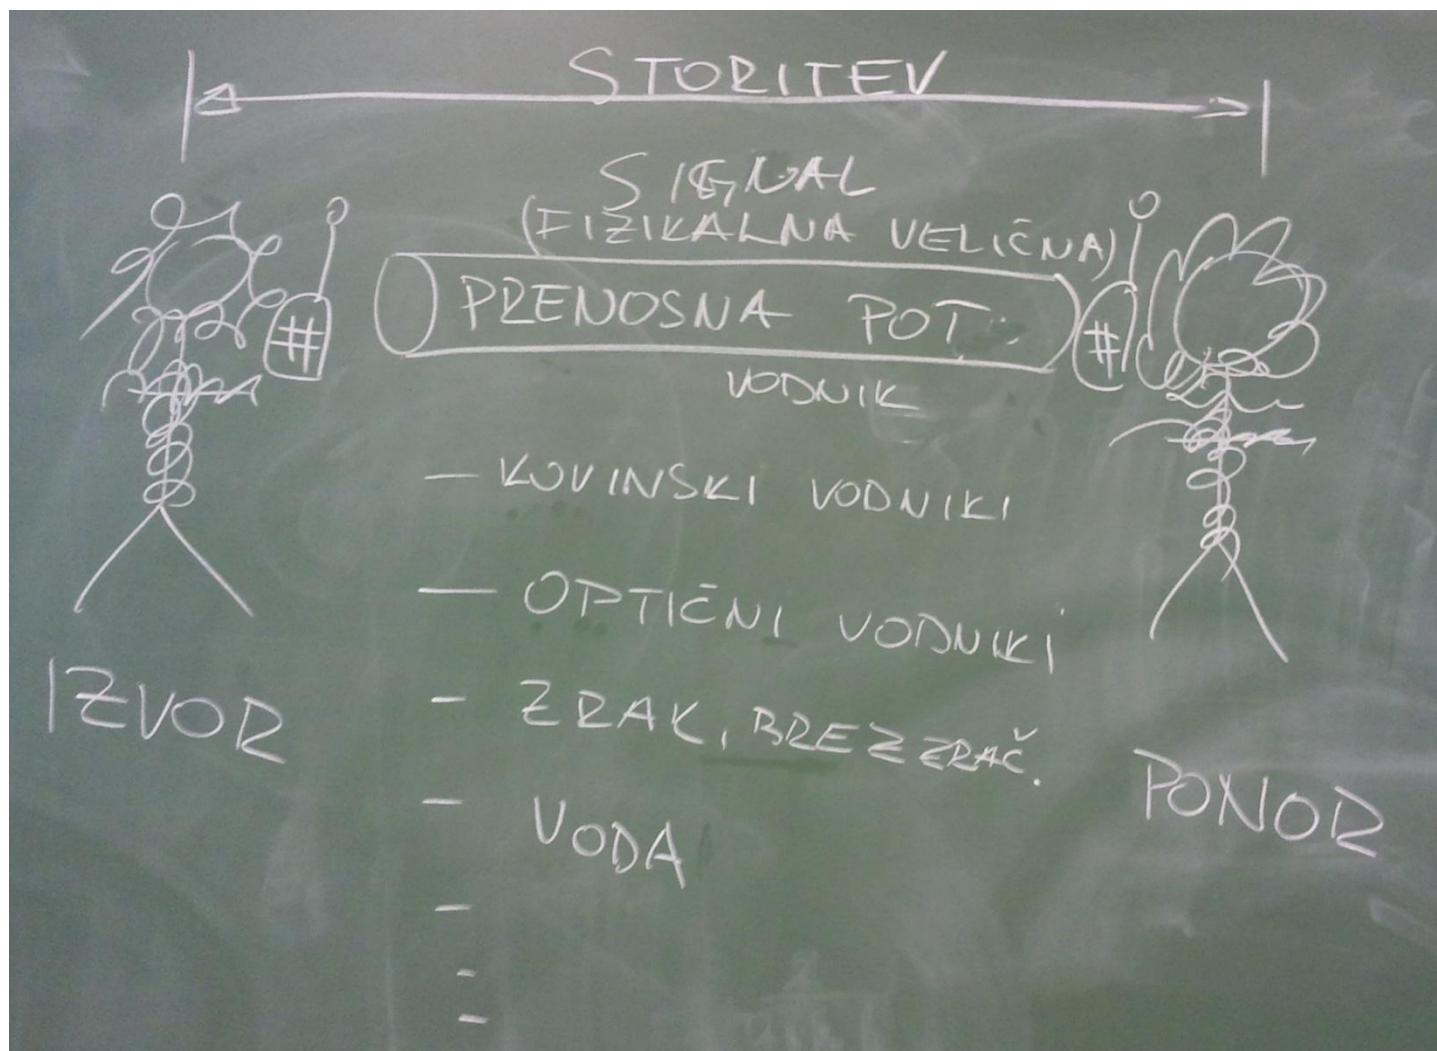 STORITEV
SIGNAL
(FIZIKALNA VELIČNA)
# PRENOSNA POT #
VODNIK
— KOVINSKI VODNIKI
— OPTIČNI VODNIKI
- ZRAK, BREZZRAČ.
IZVOR
PONOR
- VODA
-
-
-